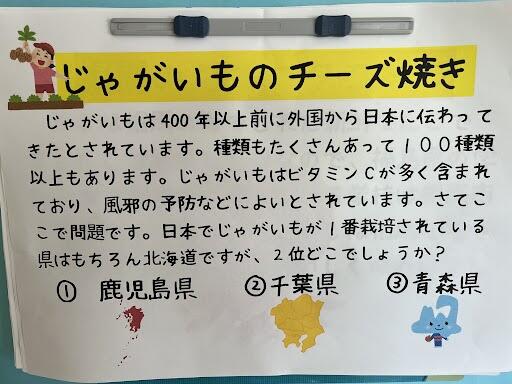 じゃがいものチーズ焼き
じゃがいもは400年以上前に外国から日本に伝わって
きたとされています。種類もたくさんあって100種類
以上もあります。じゃがいもはビタミンCが多く含まれ
ており、風邪の予防などによいとされています。さてこ
こで問題です。日本でじゃがいもが1番栽培されている
県はもちろん北海道ですが、2位どこでしょうか?
① 鹿児島県 ②千葉県 ③青森県